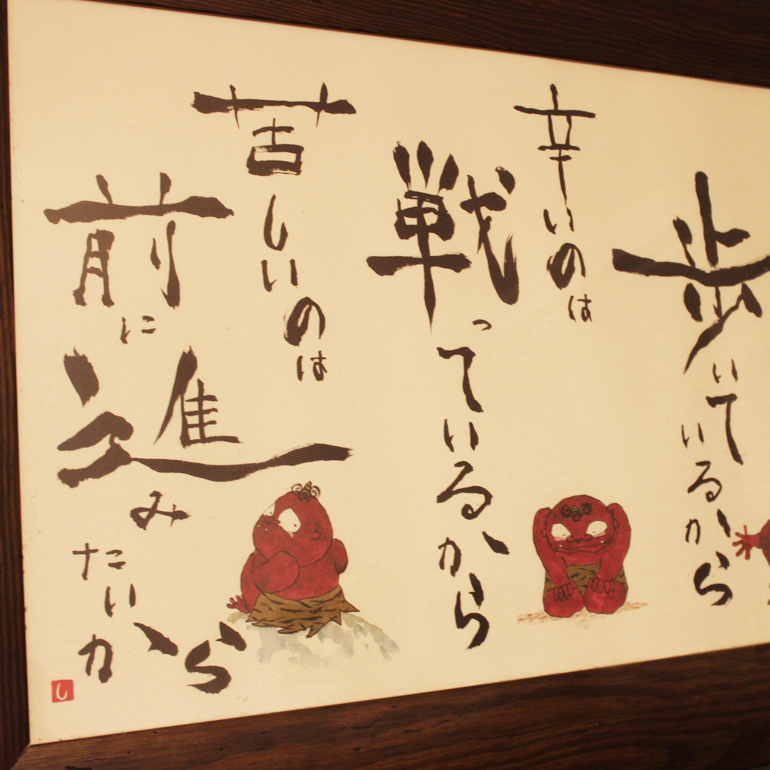 歩いて
いるから
辛いのは
戦っているから
苦しいのは
前に
進み
たいから
し